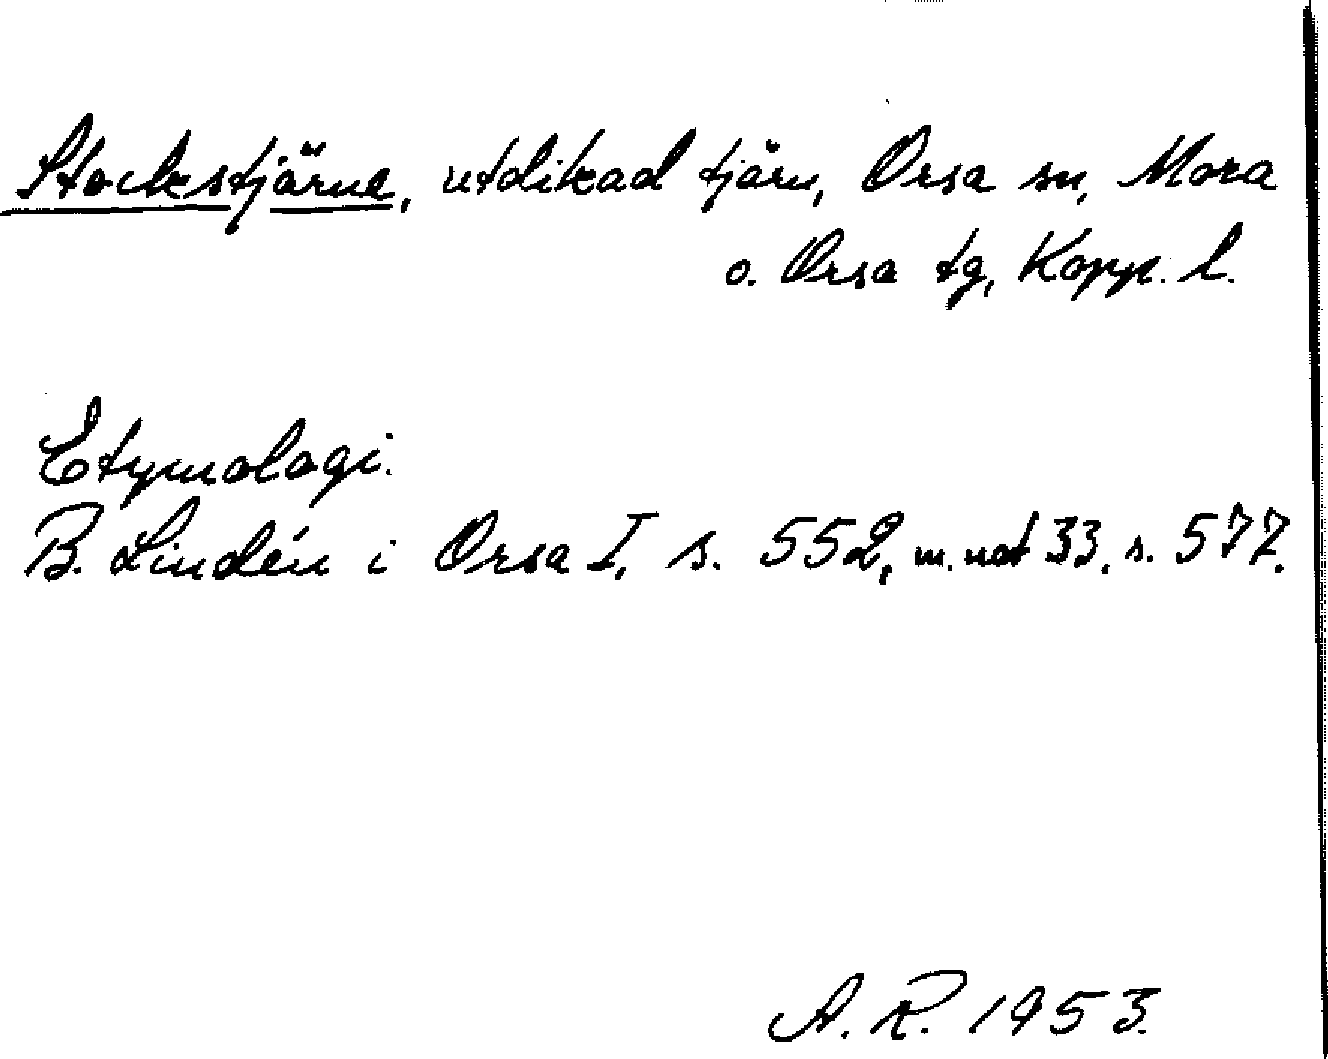 Stockstjärne, utdikad tjärn, Orsa sn, Mora
o. Orsa tg, Kopp. l.
Etymologi.
B. Lindén i Orsa I, s. 552, m. not 33, s. 577.
A. R. 1953.